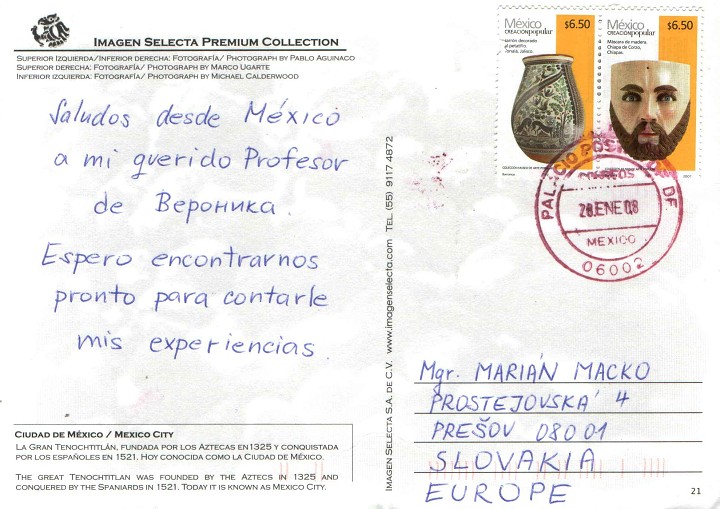 IMAGEN SELECTA PREMIUM COLLECTION
SUPERIOR IZQUIERDA/INFERIOR DERECHA: FOTOGRAFÍA/ PHOTOGRAPH BY PABLO AGUINACO
SUPERIOR DERECHA: FOTOGRAFÍA/ PHOTOGRAPH BY MARCO UGARTE
INFERIOR IZQUIERDA: FOTOGRAFÍA/ PHOTOGRAPH BY MICHAEL CALDERWOOD
Saludos desde México
a mi querido Profesor
de Вероника.
Espero encontrarnos
pronto para contarle
mis experiencias.
CIUDAD DE MÉXICO / MEXICO CITY
LA GRAN TENOCHTITLÁN, FUNDADA POR LOS AZTECAS EN 1325 Y CONQUISTADA
POR LOS ESPAÑOLES EN 1521. HOY CONOCIDA COMO LA CIUDAD DE MÉXICO.
THE GREAT TENOCHTITLAN WAS FOUNDED BY THE AZTECS IN 1325 AND
CONQUERED BY THE SPANIARDS IN 1521. TODAY IT IS KNOWN AS MEXICO CITY.
IMAGEN SELECTA S.A. DE C.V. www.imagenselecta.com TEL. (55) 9117 4872
México $6.50
CREACIÓN popular
Jarrón decorado
al petatillo.
Tonalá, Jalisco.
México $6.50
CREACIÓN popular
Máscara de madera.
Chiapa de Corzo,
Chiapas.
2007
PALACIO POSTAL DF
28 ENE 08
MEXICO
06002
Mgr. MARIÁN MACKO
PROSTEJOVSKÁ 4
PREŠOV 080 01
SLOVAKIA
EUROPE
21